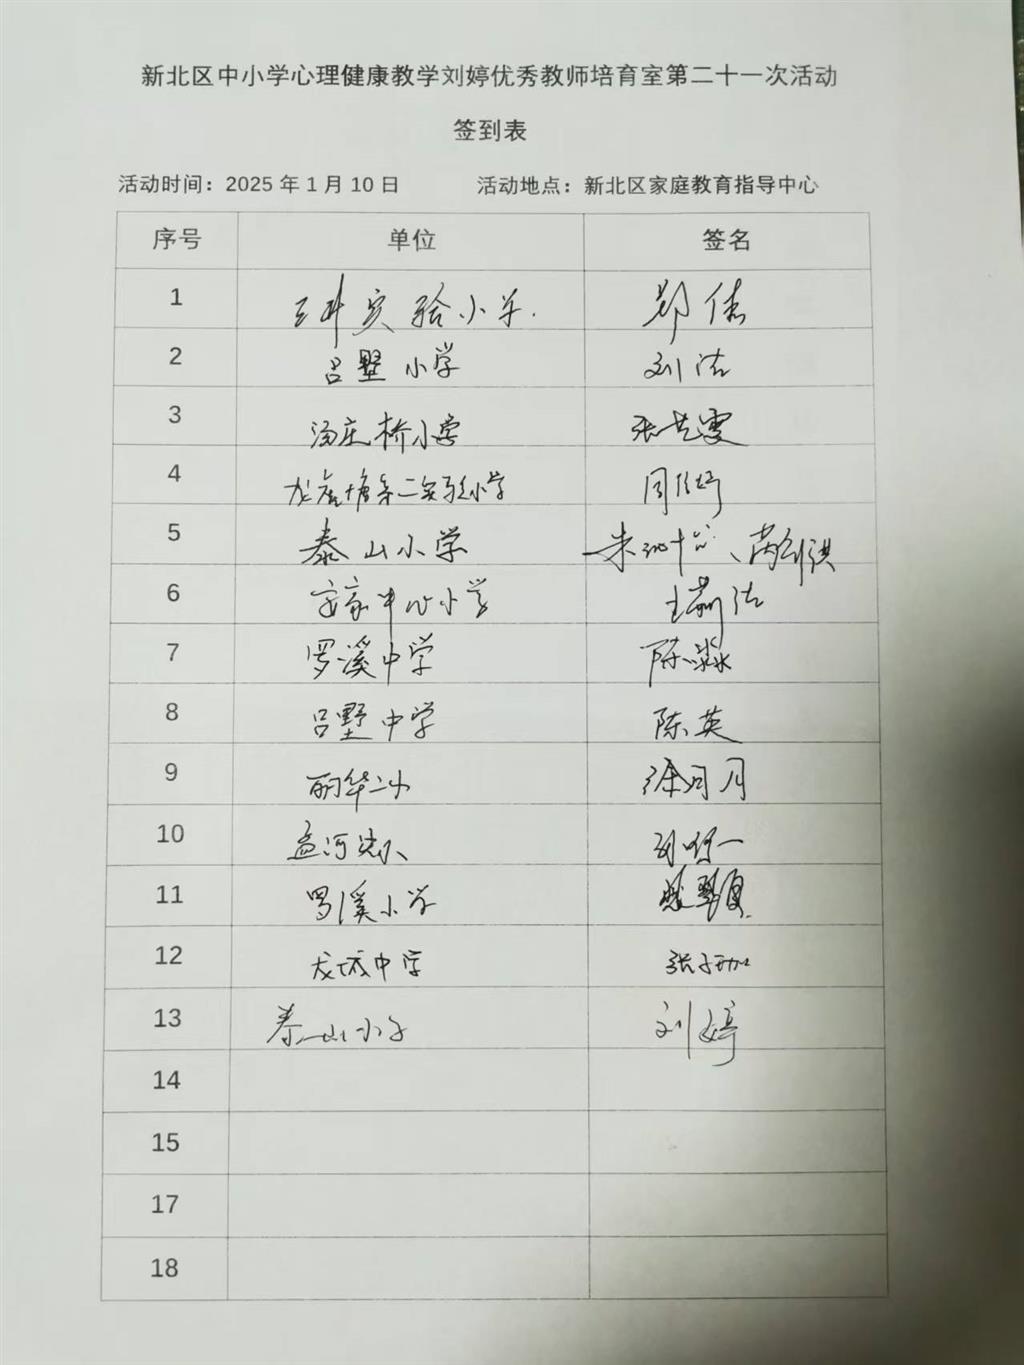 新北区中小学心理健康教学刘婷优秀教师培育室第二十一次活动
签到表
活动时间：2025 年 1 月 10 日 活动地点：新北区家庭教育指导中心
序号 单位 签名
1 三井实验小学. 郑倩
2 吕墅小学 刘洁
3 汤庄桥小学 张艺雯
4 龙虎塘第二实验小学 周
5 泰山小学 朱
6 安家中心小学 王莉洁
7 罗溪中学 陈淼
8 吕墅中学 陈英
9 丽华二小 徐月月
10 孟河实小
11 罗溪小学
12 龙城中学 张子珈
13 泰山小学 刘婷
14
15
17
18